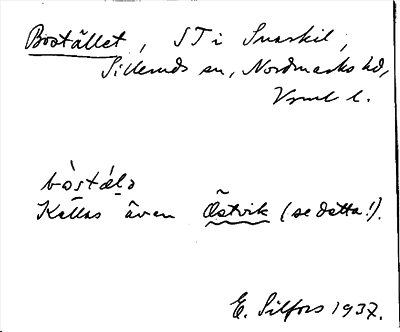 Bostället, ST i Snarkil,
Silleruds sn, Nordmarks hd,
Vrml l.
bòstálə
Kallas även Östvik (se detta!).
E. Silfors 1937.